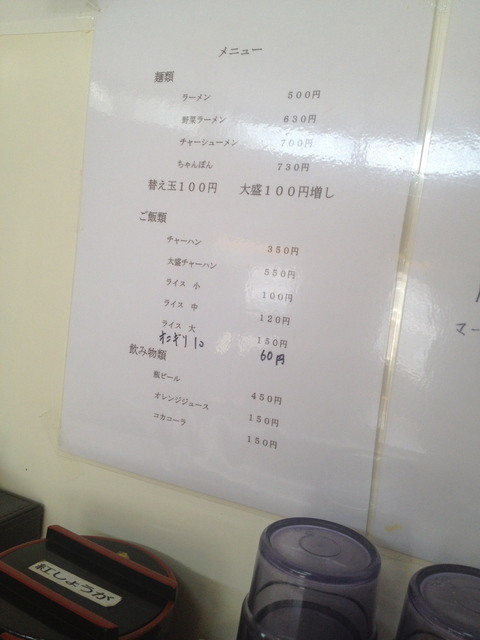 メニュー
麺類
ラーメン 500円
野菜ラーメン 630円
チャーシューメン 700円
ちゃんぽん 730円
替え玉100円 大盛100円増し
ご飯類
チャーハン 350円
大盛チャーハン 550円
ライス 小 100円
ライス 中 120円
ライス 大 150円
オニギリ1コ 60円
飲み物類
瓶ビール 450円
オレンジジュース 150円
コカコーラ 150円
紅しょうが